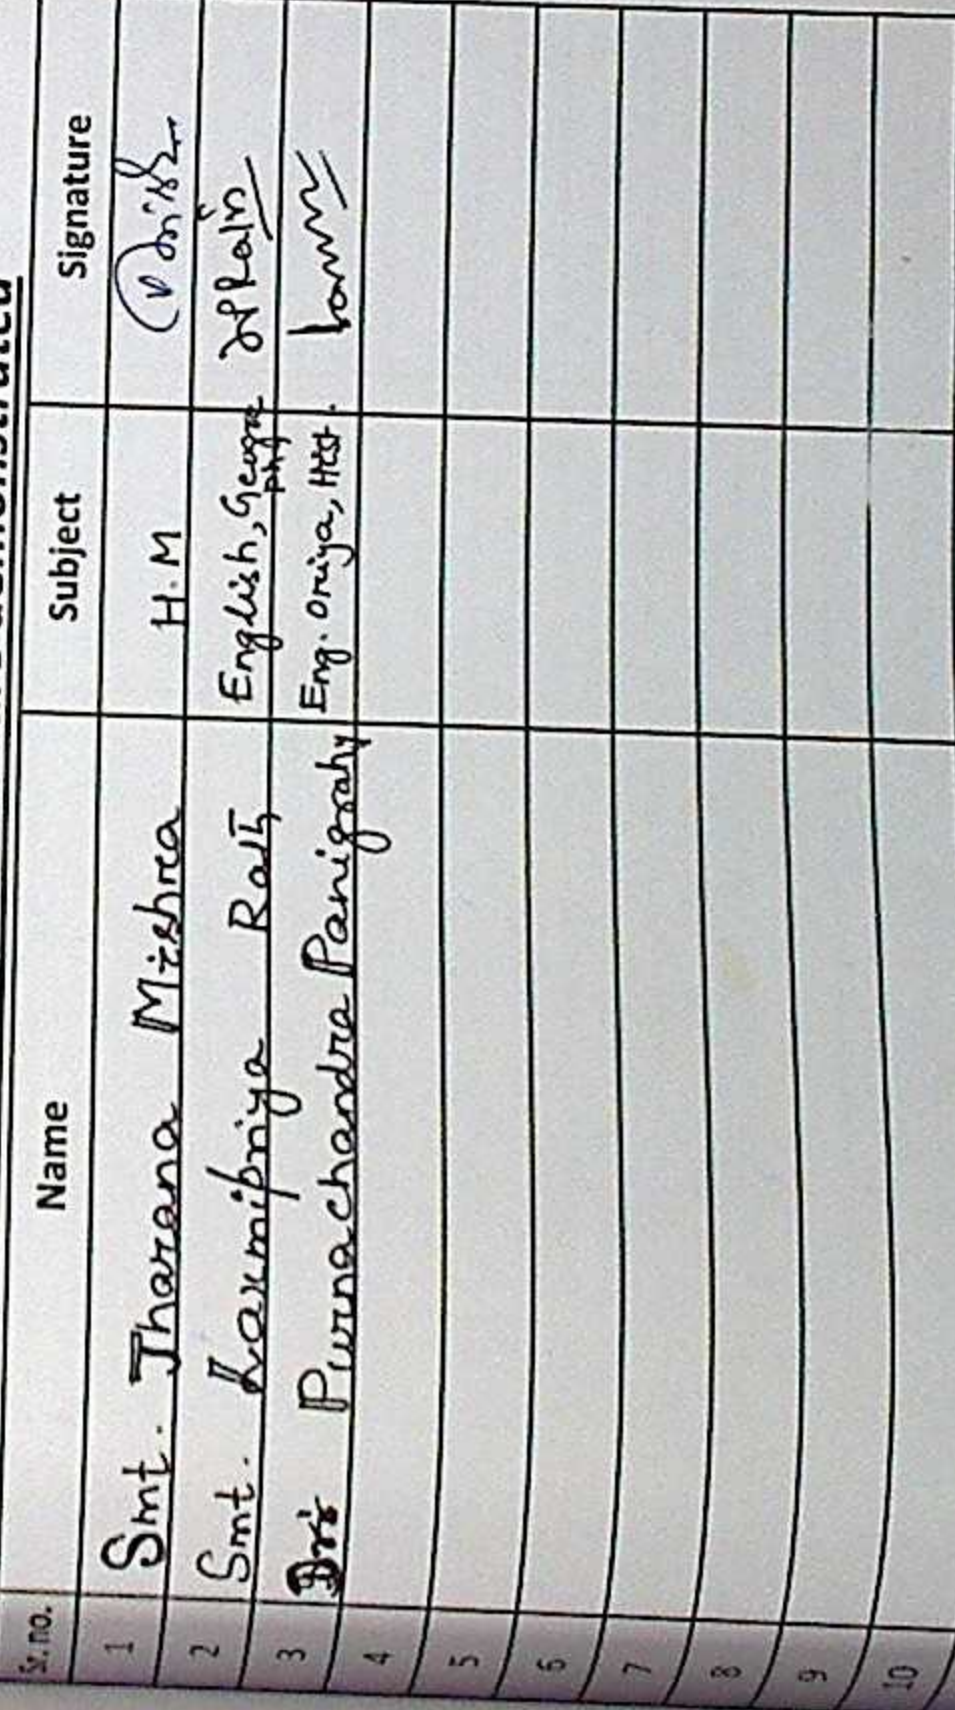 Sr. no. Name Subject Signature
1 Smt. Jharana Mishra H.M
2 Smt. Laxmipriya Rath English, Geography
3 Purnachandra Panigrahy Eng. Oriya, Hist.
4
5
6
7
8
9
10